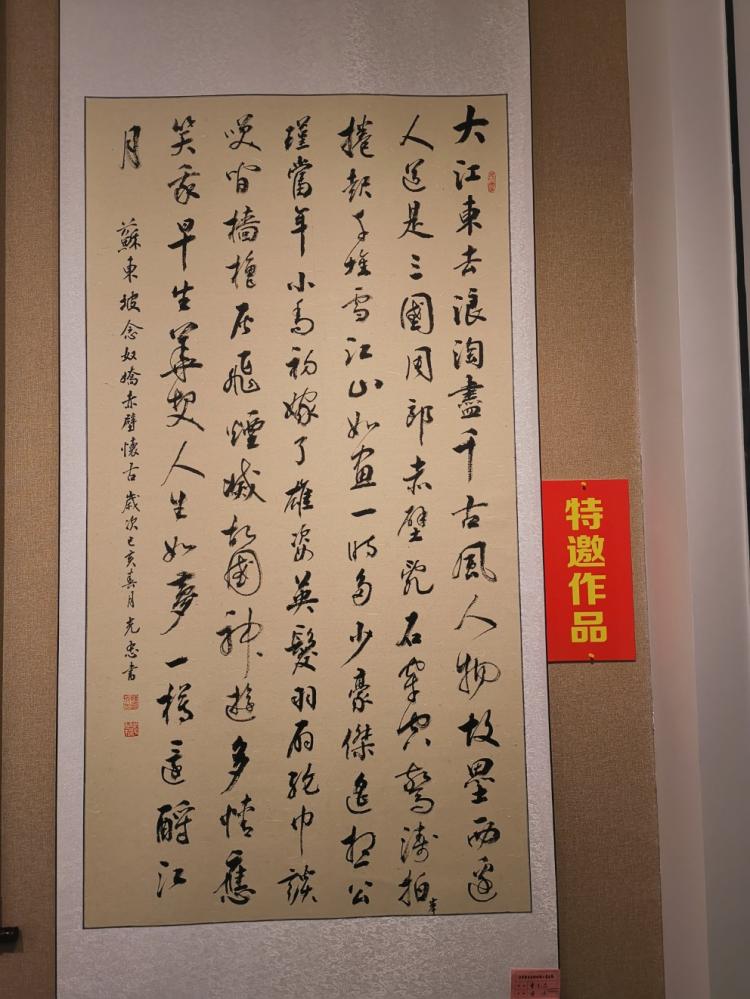 大江東去浪淘盡千古風人物故壘西邊
人道是三國周郎赤壁亂石穿空驚濤拍岸
捲起千堆雪江山如畫一時多少豪傑遙想公
瑾當年小喬初嫁了雄姿英髮羽扇綸巾談
咲間檣櫓灰飛煙滅故國神遊多情應
笑我早生華髮人生如夢一樽還酹江
月
蘇東坡念奴嬌赤壁懷古 歲次己亥真月 光忠書
特邀作品